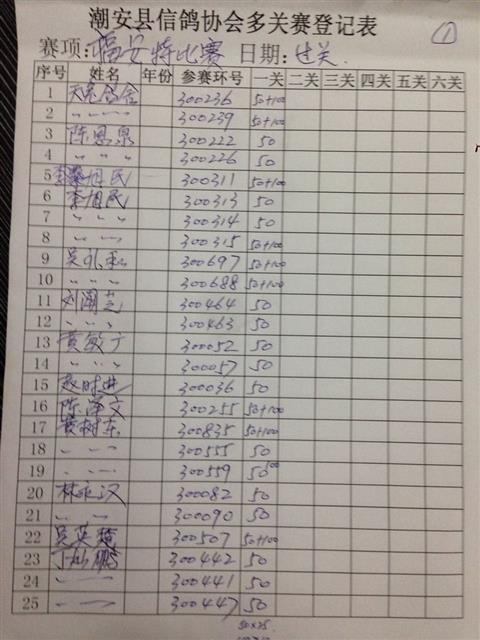 潮安县信鸽协会多关赛登记表
①
赛项:福安特比赛 日期:过关
序号 姓名 年份 参赛环号 一关 二关 三关 四关 五关 六关
1 天龙鸽舍 300236 50+100
2 〃 〃 300239 50+100
3 陈恩泉 300222 50
4 〃 〃 〃 300226 50
5 李旭民 300311 50+100
6 李旭民 300313 50
7 〃 〃 〃 300314 50
8 〃 〃 300315 50+100
9 吴孔和 300697 50+100
10 〃 〃 〃 300688 50+100
11 刘潮芝 300464 50
12 〃 〃 〃 300463 50
13 黄敏广 300052 50
14 〃 〃 〃 300057 50
15 赵时进 300036 50
16 陈泽文 300255 50+100
17 黄树东 300835 50+100
18 〃 〃 300555 50
19 〃 〃 300559 50
20 林永汉 300082 50
21 〃 〃 300090 50
22 吴英楚 300507 50+100
23 丁灿鹏 300442 50
24 〃 〃 300441 50
25 〃 〃 300447 50
50×25